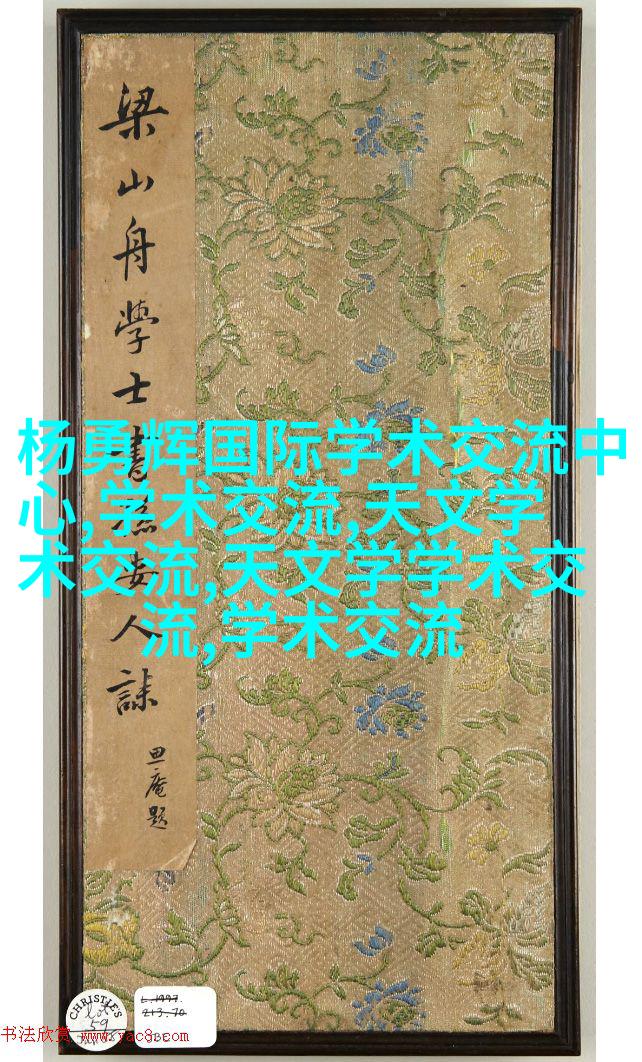 梁山舟學士書孫安人誄
庵題
杨勇辉国际学术交流中
心,学术交流,天文学
术交流,天文学学术交
流,学术交流
CHRISTIE'S
Lot
59
L.1997.
213.70
书法欣赏 www.yac8.com